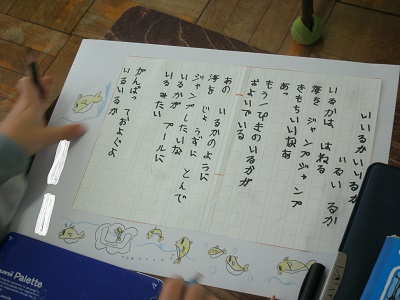 いいるかいいるか
いるい るか
いるかは はねる
海を ジャンプジャンプ
きもちいいなあ
あっ
もう一ぴきのいるかが
およいでいる
あの いるかのように
海を じょうずに とんで
ジャンプしたいな
いるかが プールに
いるみたい
がんばって およぐよ
いるいるか
Palette